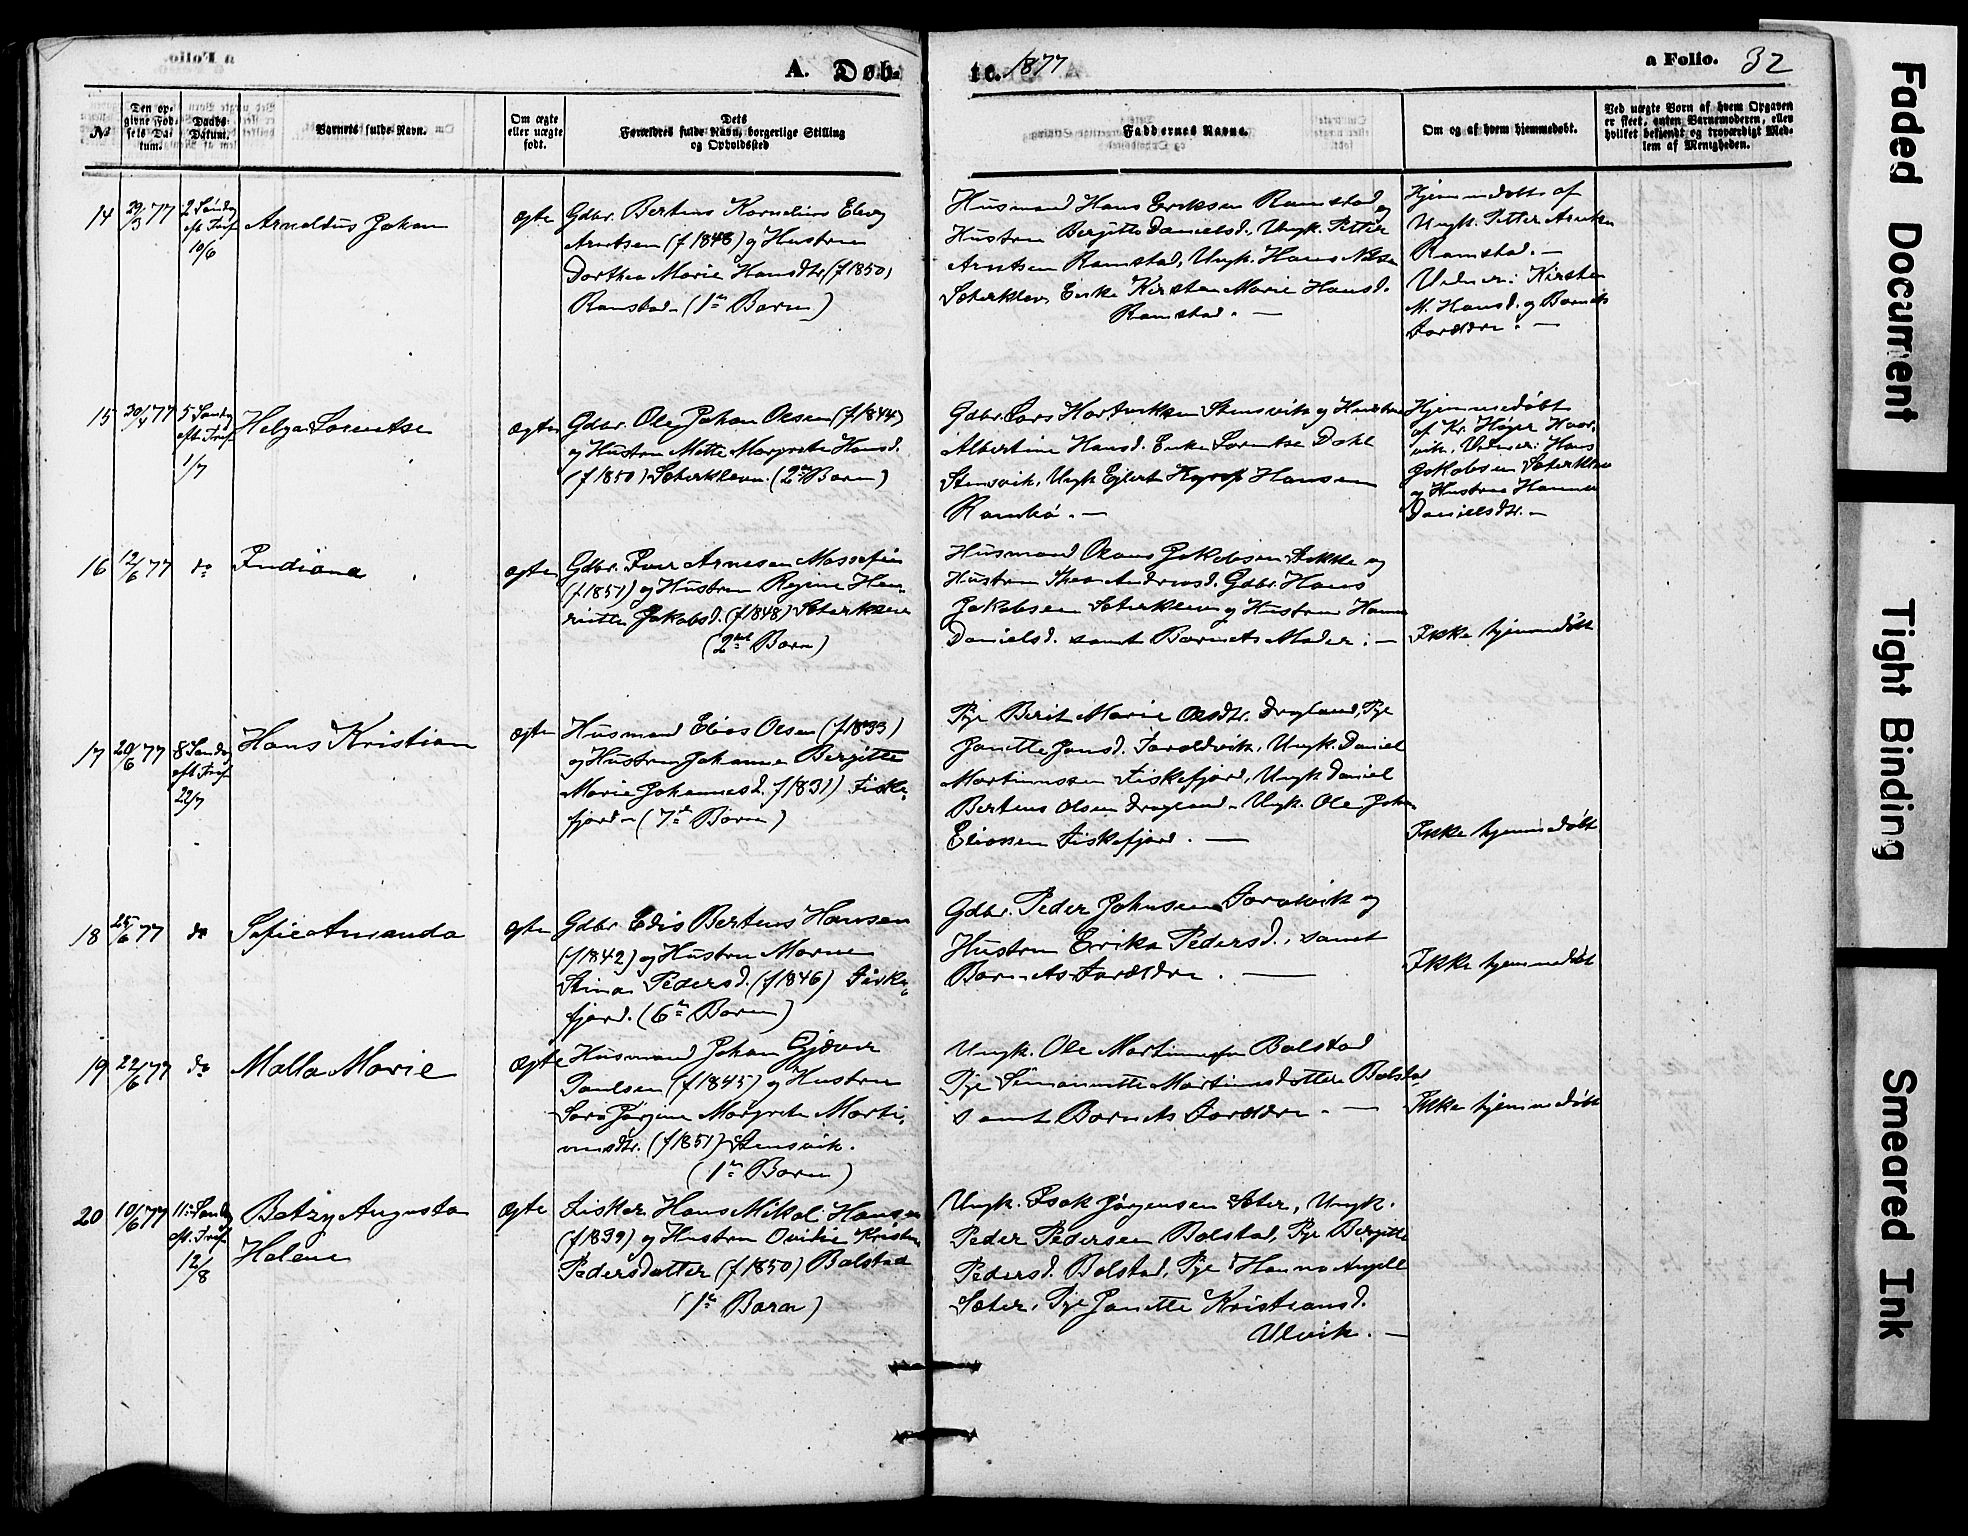 A. Døb-
te. 1877
a Folio. 32
No
Den op-
givne Fød-
sels Da-
tum.
Daabs
Datum.
Barnets fulde Navn.
Om ægte
eller uægte
født.
Dets
Forældres fulde Navn, borgerlige Stilling
og Opholdssted
Faddernes Navne.
Om og af hvem hjemmedøbt.
Ved uægte Børn af hvem Opgaven
er skeet, enten Barnemoderen, eller
hvilket bekjendt og troværdigt Med-
lem af Menigheden.
14
29/3 77
2 Søndg
eft. Tref
10/6
Arnoldus Johan
ægte
Gdbr. Bertius Kornelius
Arntsen (f 1848) og Hustru
Dorthea Marie Hansdtr (f 1850)
Ramstad - (1ste Barn)
Husmand Hans Eriksen Ramstad og
Hustru Bergitte Danielsd. Ungk. Petter
Arntsen Ramstad, Ungk. Hans
Sæterklev, Enke Kirsten Marie Hansd.
Ramstad. —
Hjemmedøbt af
Ungk. Petter
Ramstad. —
Vidner: Kirsten
M. Hansd. og Barnets
Forældre. —
15
30/4 77
5 Søndg
eft. Tref
1/7
Helga Lorentse
ægte
Gdbr. Ole Johan Olsen (f 1844)
og Hustru Mette Margrete Hansd.
(f 1850) Sæterkleven. (2det Barn)
Gdbr. Lars Hartviksen Stensvik og Hustru
Albertine Hansd. Enke Lorentse Dahl
Stensvik, Ungk Ejlert Hansen
Ramsbø. —
Hjemmedøbt
af Kr.
vik. Vidner: Hans
Jakobsen Sæterkleven
og Hustru Hanna
Danielsdtr. —
16
12/6 77
do
Indiana
ægte
Gdbr. Iver Arnesen
(f 1851) og Hustru Regine Hen-
ritte Jakobsd. (f 1848) Sæterkleven
(2det Barn)
Husmand Jakobsen og
Hustru Thea Andreasd. Gdbr. Hans
Jakobsen Sæterkleven og Hustru Hanna
Danielsd. samt Barnets Moder. —
Ikke hjemmedøbt
17
20/6 77
8 Søndg
eft Tref
22/7
Hans Kristian
ægte
Husmand Elias Olsen (f 1833)
og Hustru Johanna Bergitte
Marie Johannesd. f 1831) Fiske-
fjord - (7de Barn)
Pige Berit Marie Olsdtr. Drogland, Pige
Janette Jansd. Ungk. Daniel
Martinussen Fiskefjord, Ungk Daniel
Berteus Olsen Drogland - Ungk. Ole Johan
Eliassen Fiskefjord. —
Ikke hjemmedøbt
18
25/6 77
do
Sofie Amanda
ægte
Gdbr. Edis Berteus Hansen
(f 1842) og Hustru
Stina Pedersd. (f 1846) Fiske-
fjord. (6te Barn)
Gdbr. Peder Johnsen og
Hustru Erika Pedersd., samt
Barnets Forældre. —
Ikke hjemmedøbt
19
22/6 77
do
Malla Marie
ægte
Husmand Johan Gjæver
Paulsen (f 1845) og Hustru
Sara Jørgine Margrete Marti-
nusdtr. (f 1851) Stensvik.
(1ste Barn)
Ungk. Ole Martinussen Bolstad
Pige Simonette Martinusdatter Bolstad
samt Barnets Forældre. —
Ikke hjemmedøbt
20
10/6 77
11 Søndg
eft. Tref
12/8
Betzy Augusta
Helene
ægte
Fisker Hans Mikal Hansen
(f 1839) og Hustru Ovidie
Pedersdatter (f 1850) Bolstad
(1ste Barn)
Ungk. Isak Jørgensen Sæter, Ungk.
Peder Pedersen Bolstad, Pige Bergitte
Pedersd. Bolstad, Pige Hanna
Sæter, Pige Janette Kristiansd.
Ulvik. —
Faded Document
Tight Binding
Smeared Ink